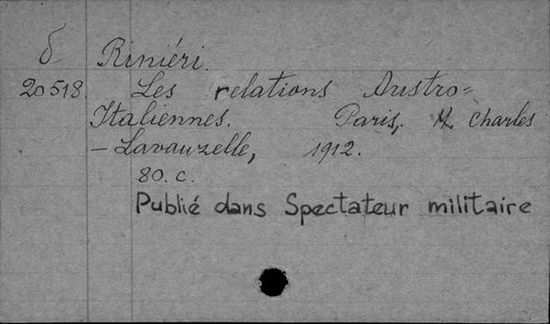 δ Riniéri.
20518. Les relations Austro=
Italiennes. Paris, H. Charles
-Lavauzelle, 1912.
80. c.
Publié dans Spectateur militaire